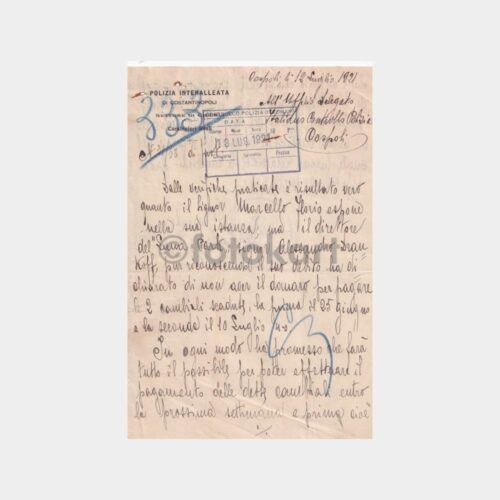 Cospoli li 12 Luglio 1921
POLIZIA INTERALLEATA
DI COSTANTINOPOLI
All' Ufficio Delegato
Italiano Controllo Polizia
Cospoli
323
POLIZIA
DATA
13 LUG. 1921
Dalle verifiche praticate è risultato vero
quanto il Signor Marcello Ilorio espone
nella sua istanza, ma il direttore
del Luna Park signor Alessandro
pur riconoscendo il suo debito ha di=
chiarato di non aver il denaro per pagare
le 2 cambiali scadute, la prima il 25 giugno
e la seconda il 10 Luglio
In ogni modo ha promesso che farà
tutto il possibile per poter effettuare il
pagamento delle dette cambiali entro
la prossima settimana e prima cioè
©fotokart